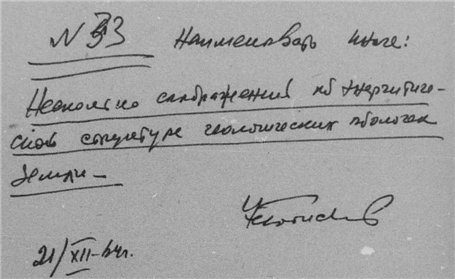 N 33 Наименовать иначе:
Несколько соображений об энергетиче-
ской структуре геологических оболочек
Земли –
21/XII-64г.